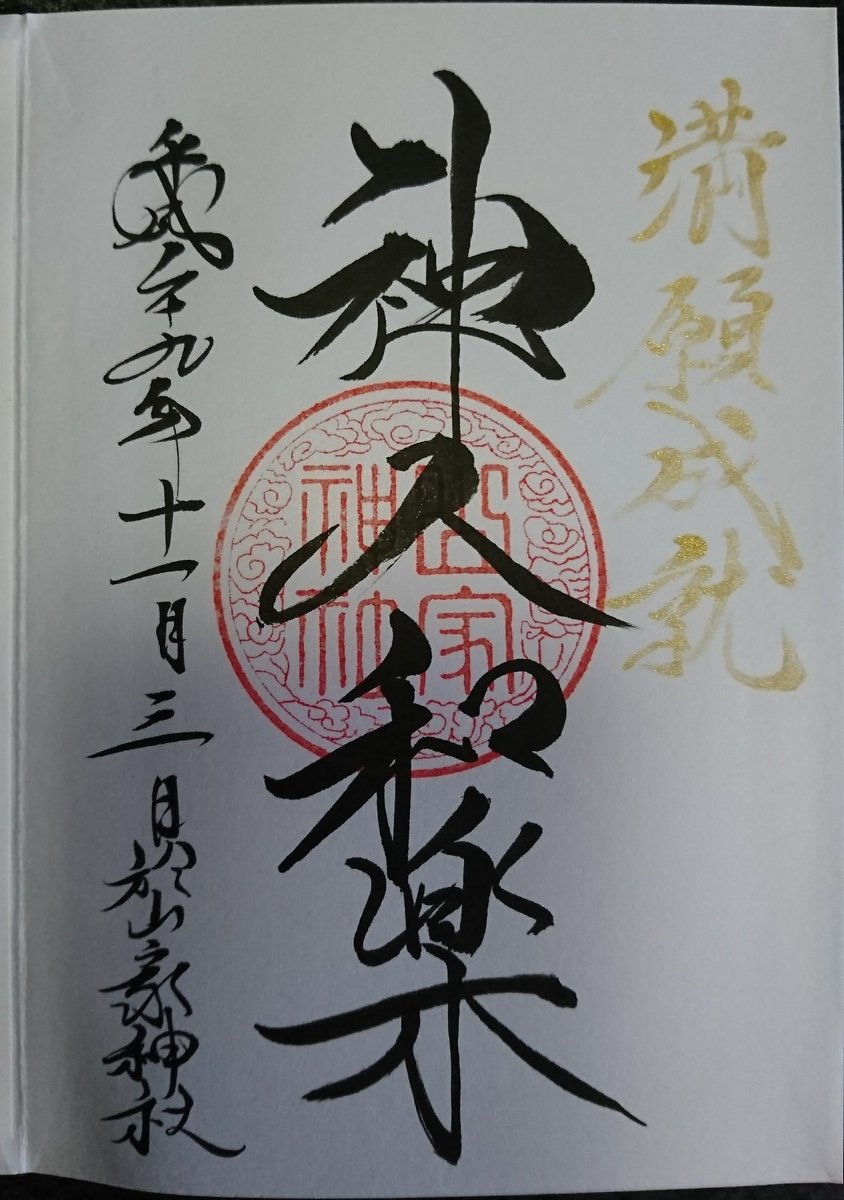 満願成就
神人和楽
山家神社
平成二十九年十一月三日於山家神社